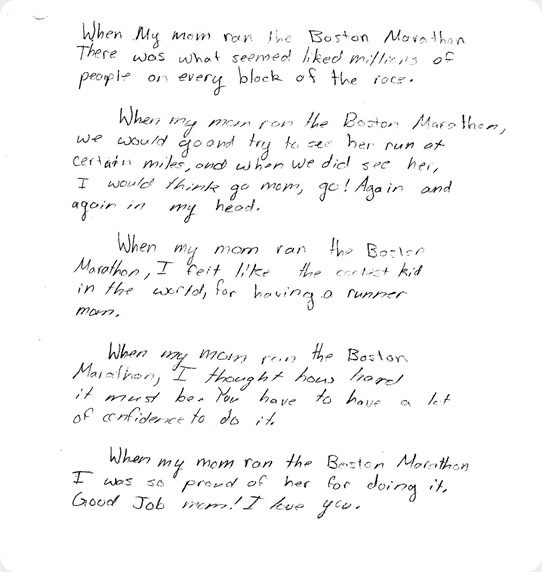 When My mom ran the Boston Marathon
There was what seemed liked millions of
people on every block of the race.
When my mom ran the Boston Marathon,
we would go and try to see her run at
certain miles, and when we did see her,
I would think go mom, go! Again and
again in my head.
When my mom ran the Boston
Marathon, I felt like the coolest kid
in the world, for having a runner
mom.
When my mom ran the Boston
Marathon, I thought how hard
it must be. You have to have a lot
of confidence to do it.
When my mom ran the Boston Marathon
I was so proud of her for doing it.
Good Job mom! I love you.